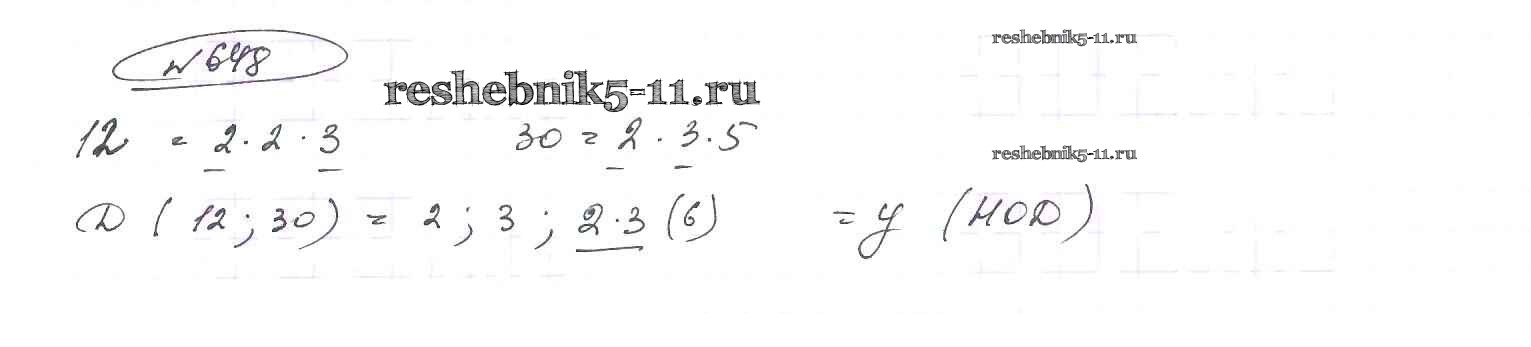 №648
reshebnik5-11.ru
reshebnik5-11.ru
12 = 2·2·3 30 = 2·3·5
reshebnik5-11.ru
D (12; 30) = 2; 3; 2·3 (6) = y (НОД)